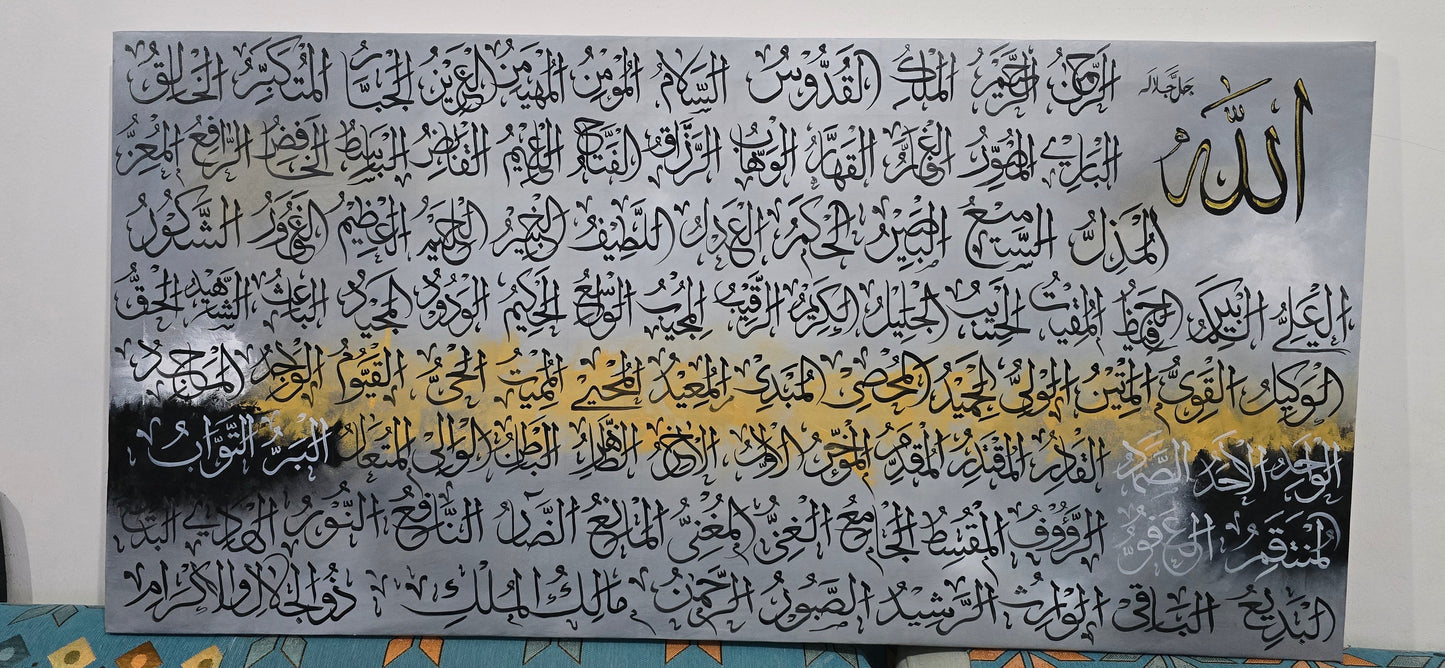 الله جل جلاله
الرحمن الرحيم الملك القدوس السلام المؤمن المهيمن العزيز الجبار المتكبر الخالق
البارئ المصور الغفار القهار الوهاب الرزاق الفتاح العليم القابض الباسط الخافض الرافع المعز
المذل السميع البصير الحكم العدل اللطيف الخبير الحليم العظيم الغفور الشكور
العلي الكبير الحفيظ المقيت الحسيب الجليل الكريم الرقيب المجيب الواسع الحكيم الودود المجيد الباعث الشهيد الحق
الوكيل القوي المتين الولي الحميد المحصي المبدئ المعيد المحيي المميت الحي القيوم الواجد الماجد
الواحد الاحد الصمد القادر المقتدر المقدم المؤخر الاول الاخر الظاهر الباطن الوالي المتعال البر التواب
المنتقم العفور الرؤوف المقسط الجامع الغني المغني المانع الضار النافع النور الهادي
البديع الباقي الوارث الرشيد الصبور الرحمن مالك الملك ذو الجلال والاكرام